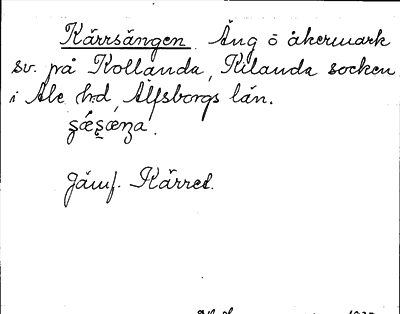 Kärrsängen Äng ö åkermark
sv. på Kollanda, Kilanda socken
i Ale hd, Älfsborgs län.
Jämf. Kärret.